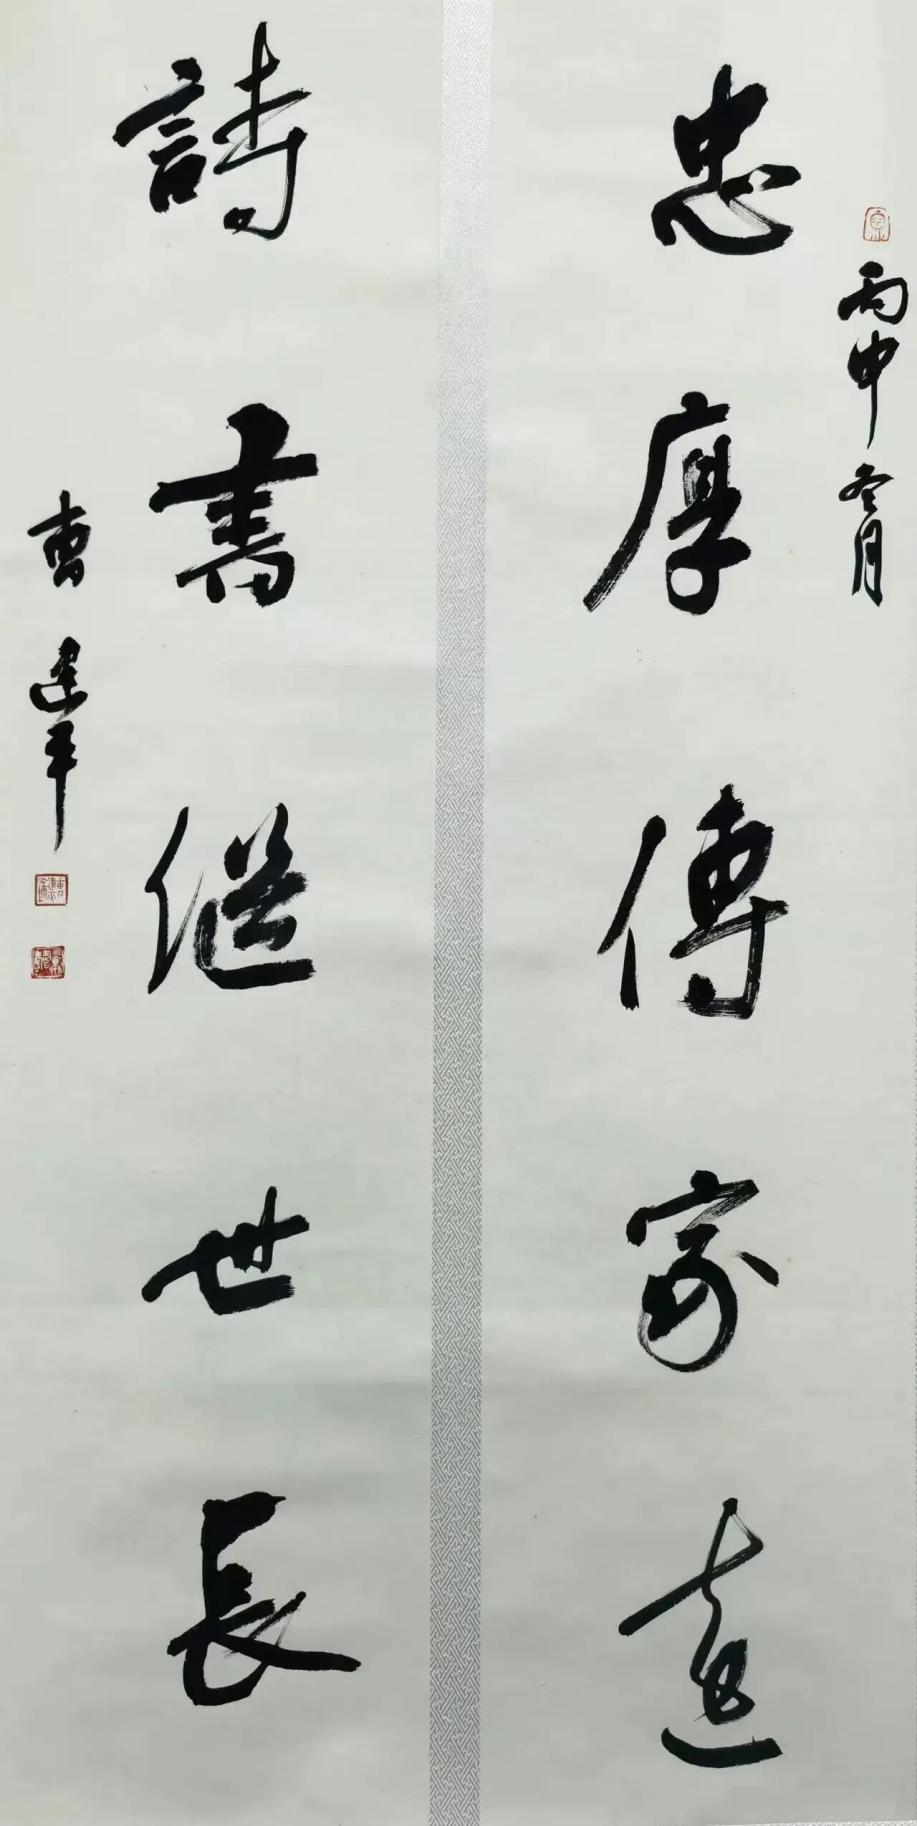 丙申冬月
忠厚傳家遠
詩書继世長
曹建平